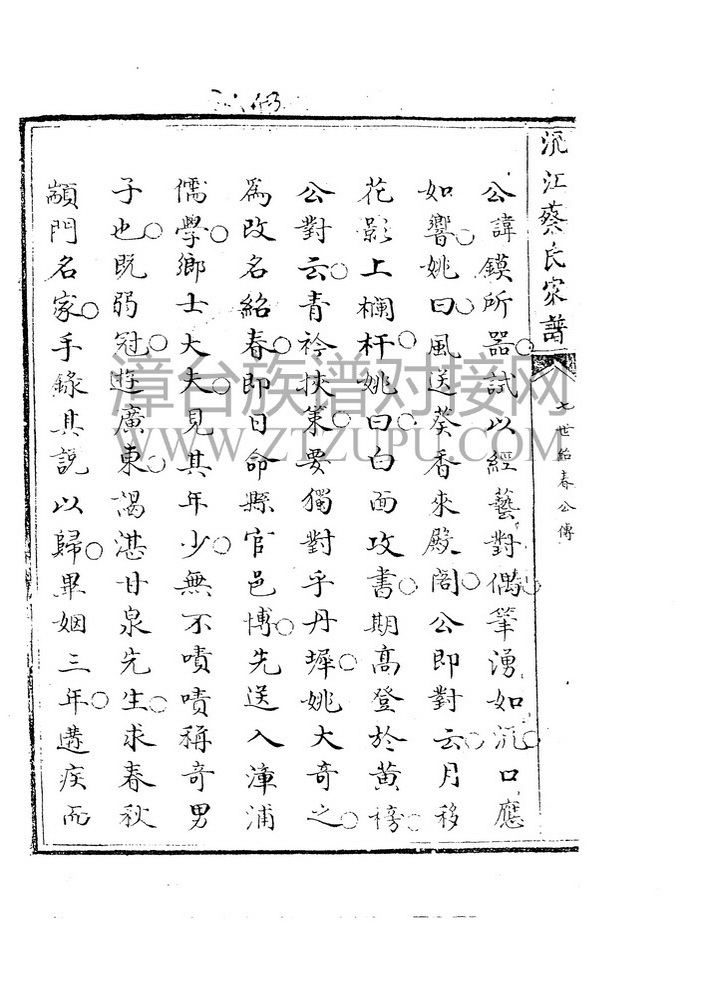 沉江蔡氏家譜
七世紹春公傳
公諱鏌所器○試以經藝對偶○筆湧如沉○口應
如響○姚曰風送葵香來殿閣○公即對云○月移
花影上欄杆○姚曰白面攻書○期高登於黃榜○
公對云○青衿挾策○要獨對乎丹墀○姚大奇之○
為改名紹春○即日命縣官邑博○先送入漳浦
儒學○鄉士大夫○見其年少○無不嘖嘖稱奇男
子也○既弱冠○遊廣東○謁湛甘泉先生○求春秋
顓門名家○手錄其說以歸○畢姻三年○遘疾而
漳台族谱对接网
WWW.ZTZUPU.COM